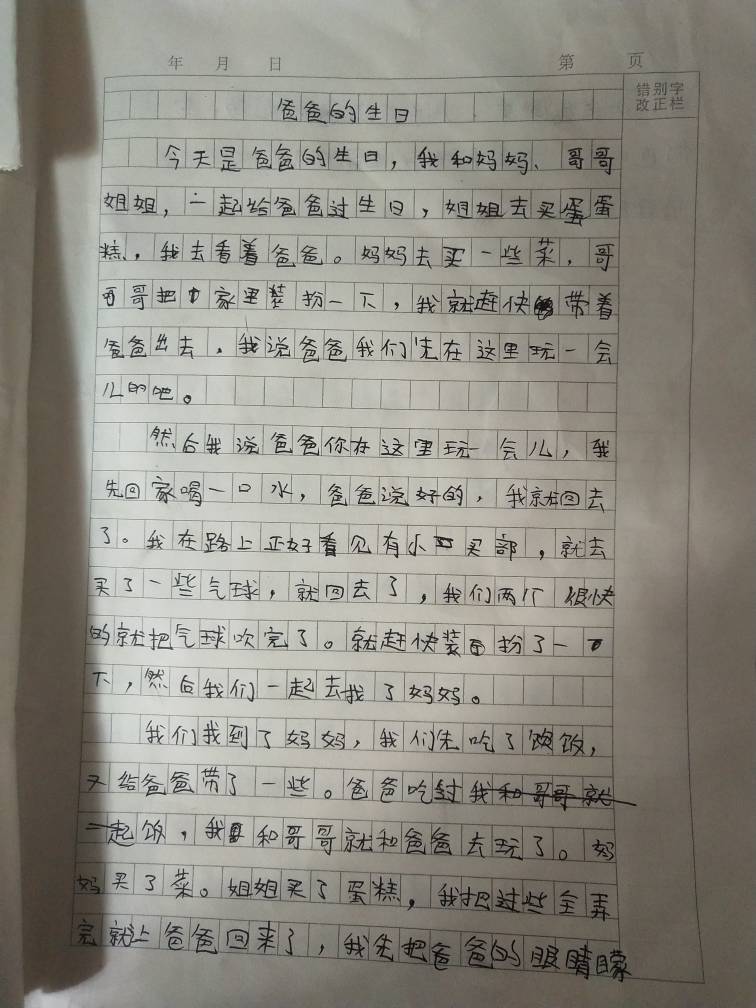 年 月 日 第 页
错别字
改正栏
爸爸的生日
今天是爸爸的生日，我和妈妈、哥哥
姐姐，一起给爸爸过生日，姐姐去买蛋蛋
糕，我去看着爸爸。妈妈去买一些菜，哥
哥把家里装扮一下，我就赶快带着
爸爸出去，我说爸爸我们先在这里玩一会
儿的吧。
然后我说爸爸你在这里玩一会儿，我
先回家喝一口水，爸爸说好的，我就回去
了。我在路上正好看见有小买部，就去
买了一些气球，就回去了，我们两个很快
的就把气球吹完了。就赶快装扮了一
下，然后我们一起去找了妈妈。
我们找到了妈妈，我们先吃了饭，
又给爸爸带了一些。爸爸吃过我和哥哥就
一起饭，我和哥哥就和爸爸去玩了。妈
妈买了菜。姐姐买了蛋糕，我把这些全弄
完就让爸爸回来了，我先把爸爸的眼睛曚